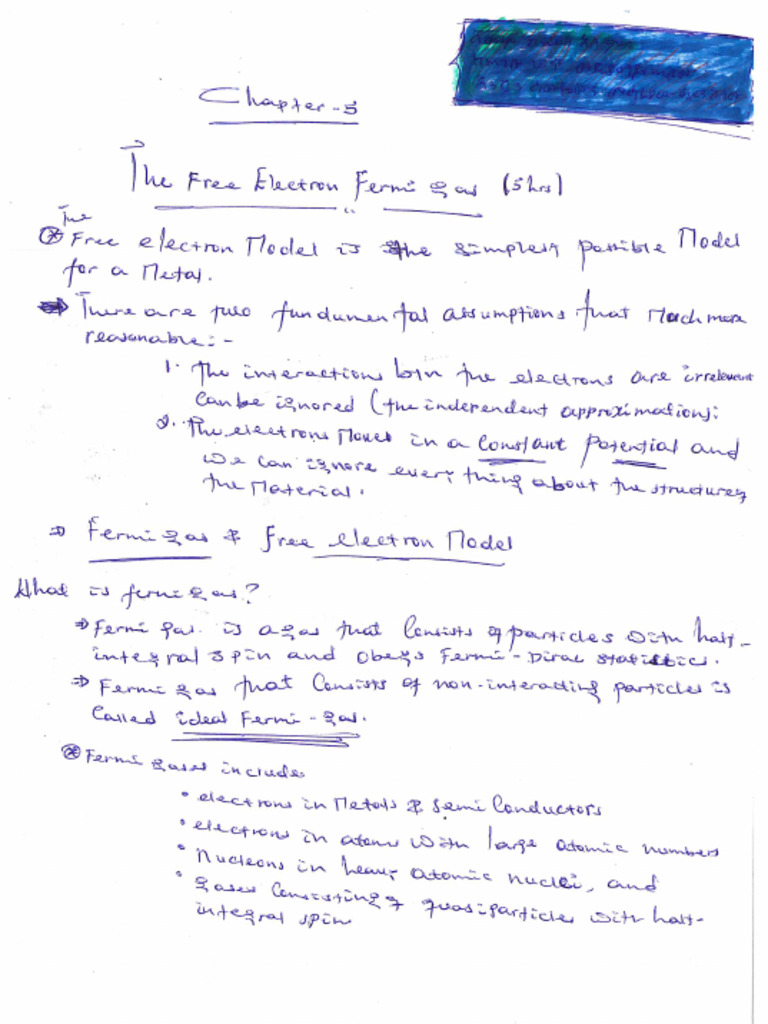 Chapter-5
The Free Electron Fermi gas (5hrs)
The
Free electron Model is the simplest possible Model
for a Metal.
⇒ There are two fundamental assumptions that Mach more
reasonable:-
1. The interactions btn the electrons are irrelevant
can be ignored (the independent approximation):
2. The electrons Moves in a constant potential and
we can ignore every thing about the structure of
the Material.
⇒ Fermi gas & free electron Model
What is fermi gas?
⇒ Fermi gas is a gas that Consists of particles with half-
integral spin and obeys Fermi-Dirac statistics.
⇒ Fermi gas that Consists of non-interacting particles is
Called ideal Fermi-gas.
Fermi gases include
• electrons in Metals & semi Conductors
• electrons in atoms with large atomic numbers
• Nucleons in heavy atomic nuclei, and
• gases Consisting of quasiparticles with half-
integral spin